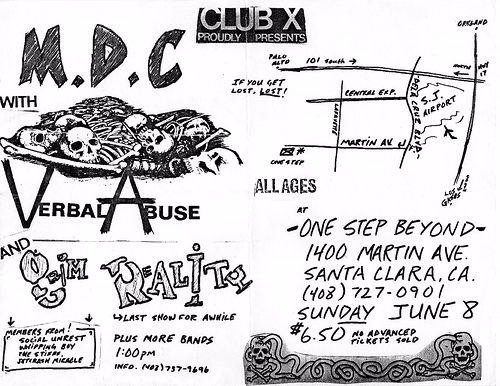 CLUB X
PROUDLY PRESENTS
M.D.C
WITH
VERBAL ABUSE
AND
GRIM REALITY
↳LAST SHOW FOR AWHILE
MEMBERS FROM!
SOCIAL UNREST
WHIPPING BOY
THE STIFFS,
JETTRASH MIRACLE
PLUS MORE BANDS
1:00pm
INFO. (408) 737-9696
OAKLAND
PALO ALTO
101 South →
NORTH
HWY 17
IF YOU GET LOST, LOST!
CENTRAL EXP.
DELA CRUZ BLVD.
S.J. AIRPORT
LAFAYETTE
MARTIN AV.
ONE STEP
LOS GATOS
ALL AGES
AT
-ONE STEP BEYOND-
1400 MARTIN AVE.
SANTA CLARA, CA.
(408) 727-0901
SUNDAY JUNE 8
$6.50 NO ADVANCED TICKETS SOLD